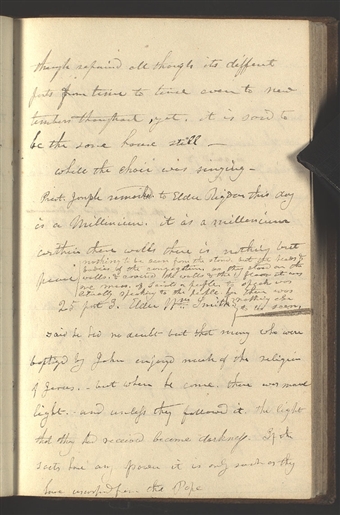 though repaired all though its different
parts from time to time even to new
timbers throughout, yet. it is said to
be the same house still —
while the choir was singing —
Prest. Joseph remarkd to Elder Rigdon this day
is a Millenium. it is a millenium
within these walls there is nothing but
peace
nothing to be seen from the stand but the heads &
bodies of the congregation as they stood on the
walls. & covered the walls & the floor. it was
one mass of saints & people. to speak was
literally speaking to the people for there was
nothing else
to be seen.
25 past 3. Elder Wm Smith
said he had no doubt but that many who were
baptized by John enjoyed much of the religion
of Jesus. but where he come. there was more
light. and unless they followed it. the light
that they had received became darkness. If the
sects have any power it is only such as they
have from the Pope